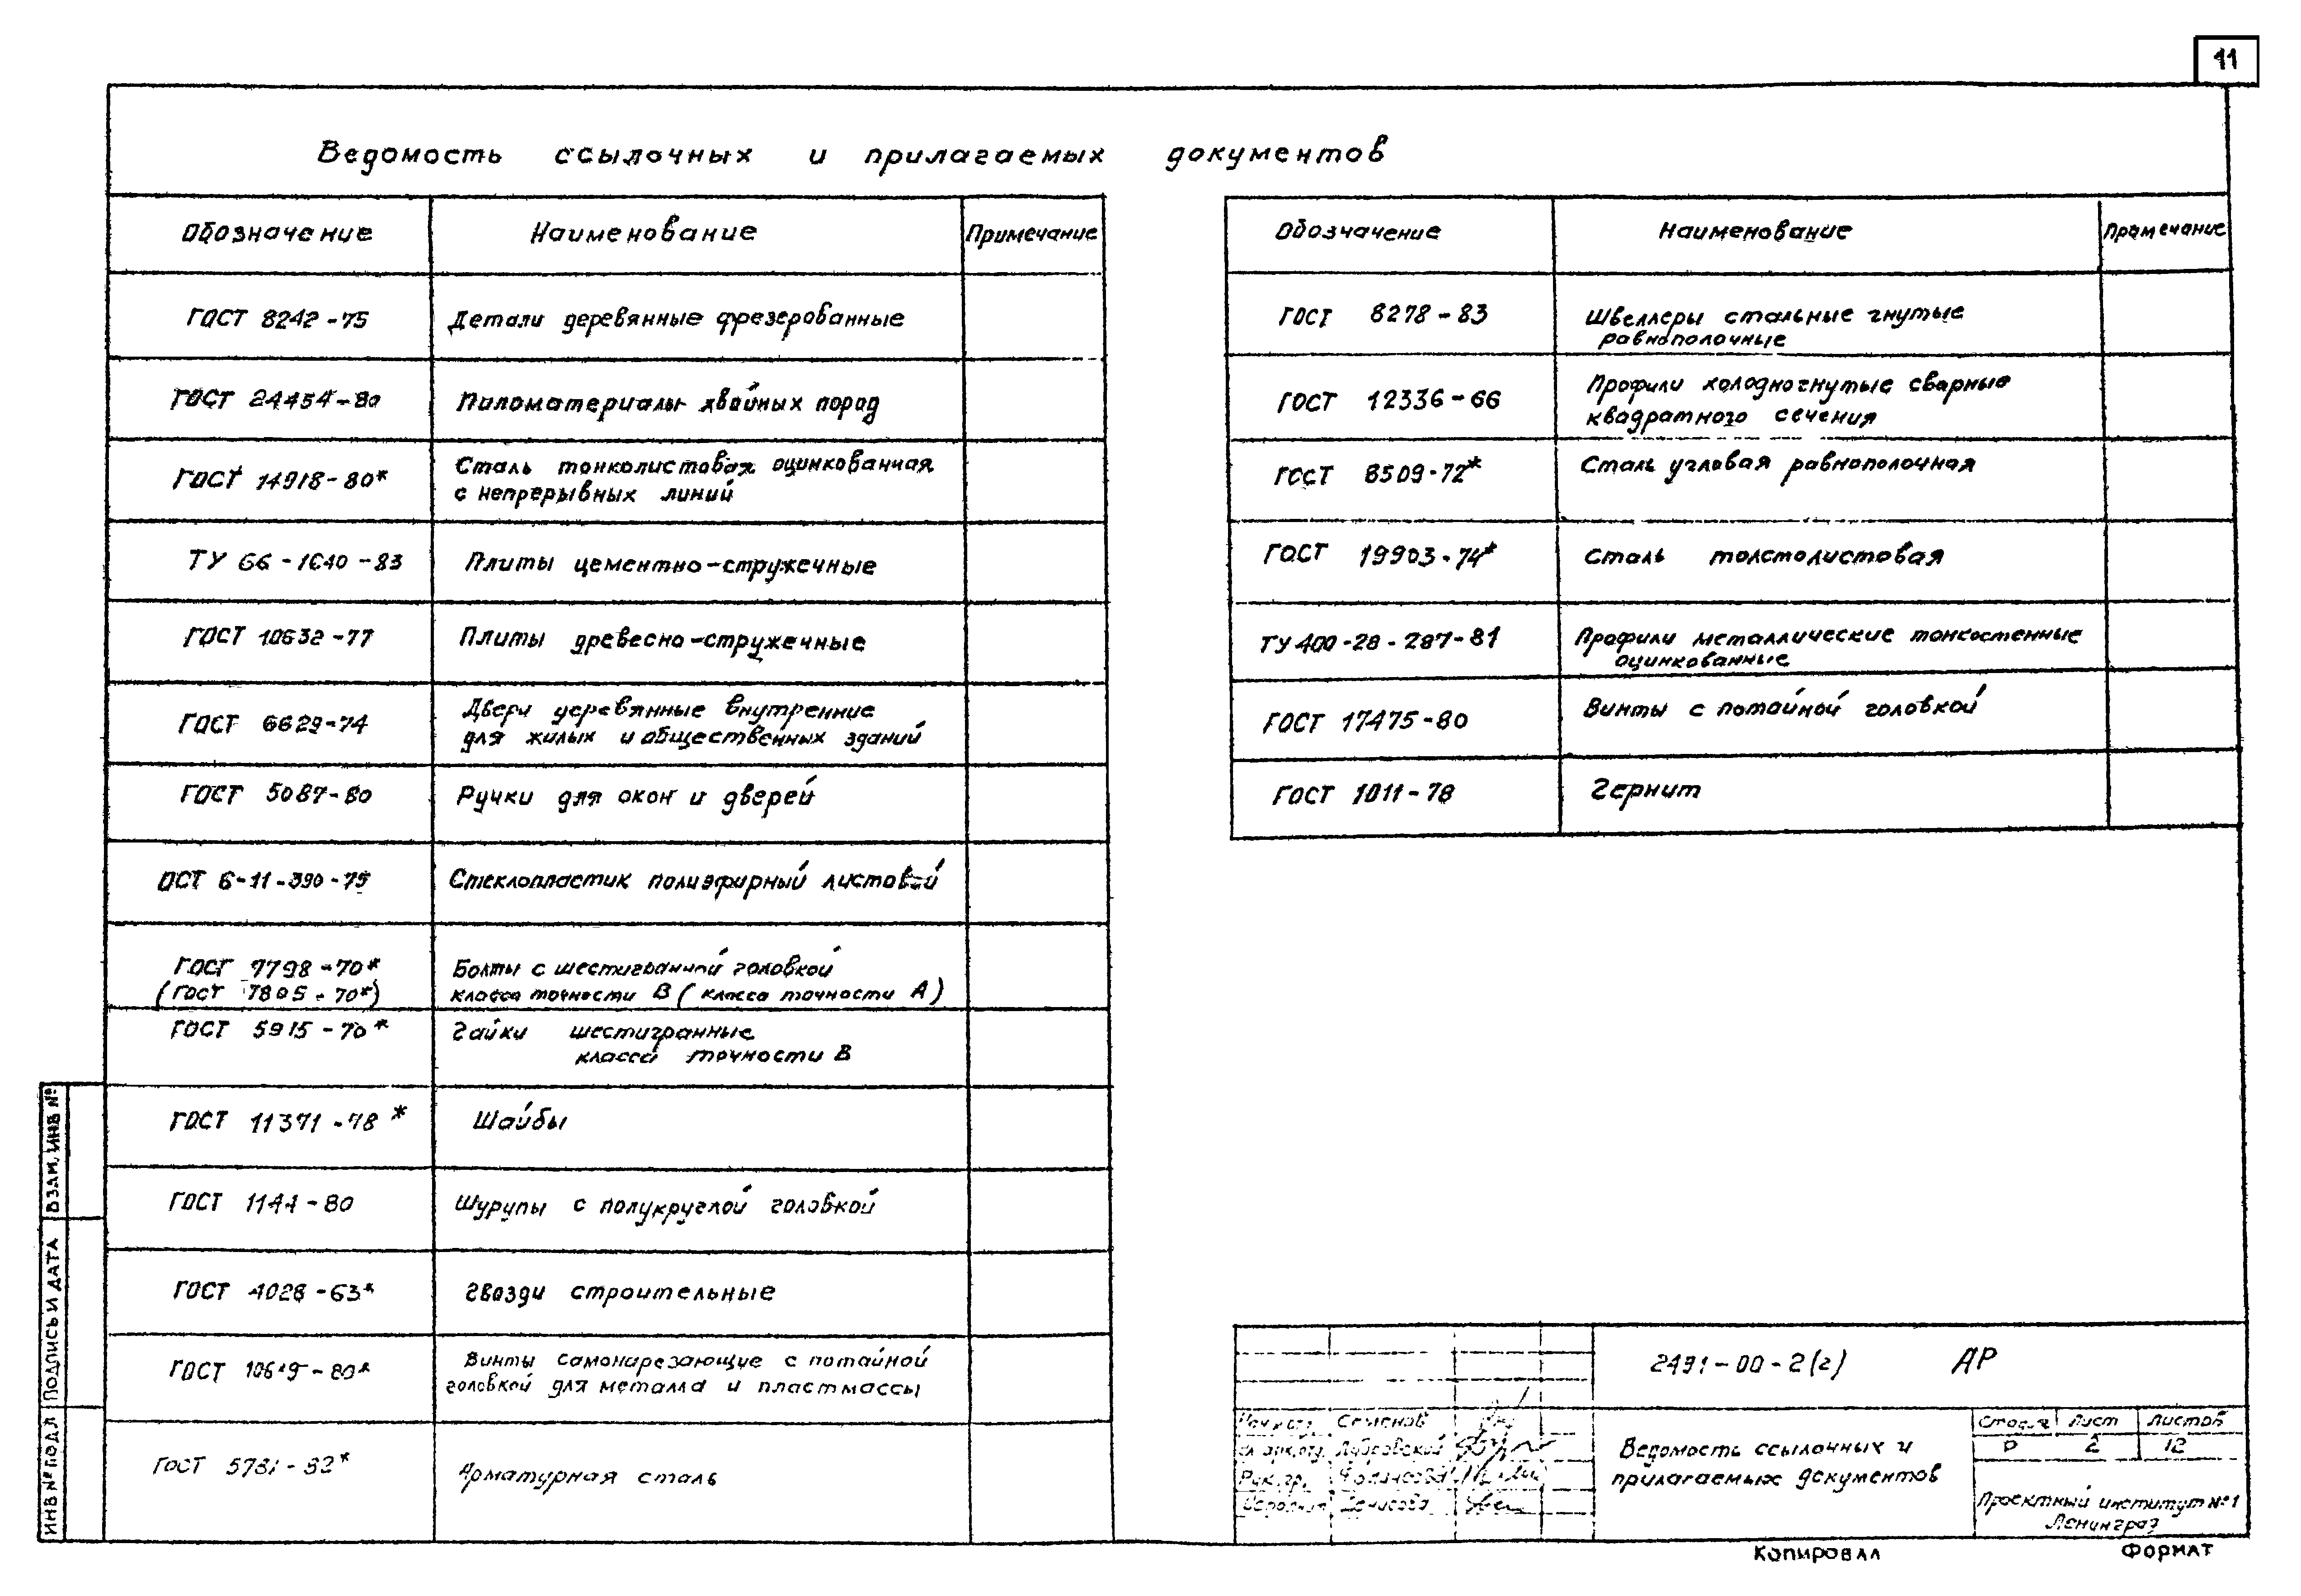 11
Ведомость ссылочных и прилагаемых документов
Обозначение Наименование Примечание
ГОСТ 8242-75 Детали деревянные фрезерованные
ГОСТ 24454-80 Пиломатериалы хвойных пород
ГОСТ 14918-80* Сталь тонколистовая оцинкованная
с непрерывных линий
ТУ 66-1640-83 Плиты цементно-стружечные
ГОСТ 10632-77 Плиты древесно-стружечные
ГОСТ 6629-74 Двери деревянные внутренние
для жилых и общественных зданий
ГОСТ 5087-80 Ручки для окон и дверей
ОСТ 6-11-390-75 Стеклопластик полиэфирный листовой
ГОСТ 7798-70* Болты с шестигранной головкой
(ГОСТ 7805-70*) класса точности В (класса точности А)
ГОСТ 5915-70* Гайки шестигранные
класса точности В
ГОСТ 11371-78* Шайбы
ГОСТ 1144-80 Шурупы с полукруглой головкой
ГОСТ 4028-63* Гвозди строительные
ГОСТ 10619-80* Винты самонарезающие с потайной
головкой для металла и пластмассы
ГОСТ 5781-82* Арматурная сталь
Обозначение Наименование Примечание
ГОСТ 8278-83 Швеллеры стальные гнутые
равнополочные
ГОСТ 12336-66 Профили холодногнутые сварные
квадратного сечения
ГОСТ 8509-72* Сталь угловая равнополочная
ГОСТ 19903-74* Сталь толстолистовая
ТУ 400-28-287-81 Профили металлические тонкостенные
оцинкованные
ГОСТ 17475-80 Винты с потайной головкой
ГОСТ 1011-78 Гернит
2491-00-2(г) АР
Семенов
Рук.гр.
Исполнил Денисова
Ведомость ссылочных и
прилагаемых документов
Стадия Лист Листов
Р 2 12
Проектный институт №1
Ленинград
Копировал ФОРМАТ
ВЗАМ. ИНВ №
ПОДПИСЬ И ДАТА
ИНВ № ПОДЛ